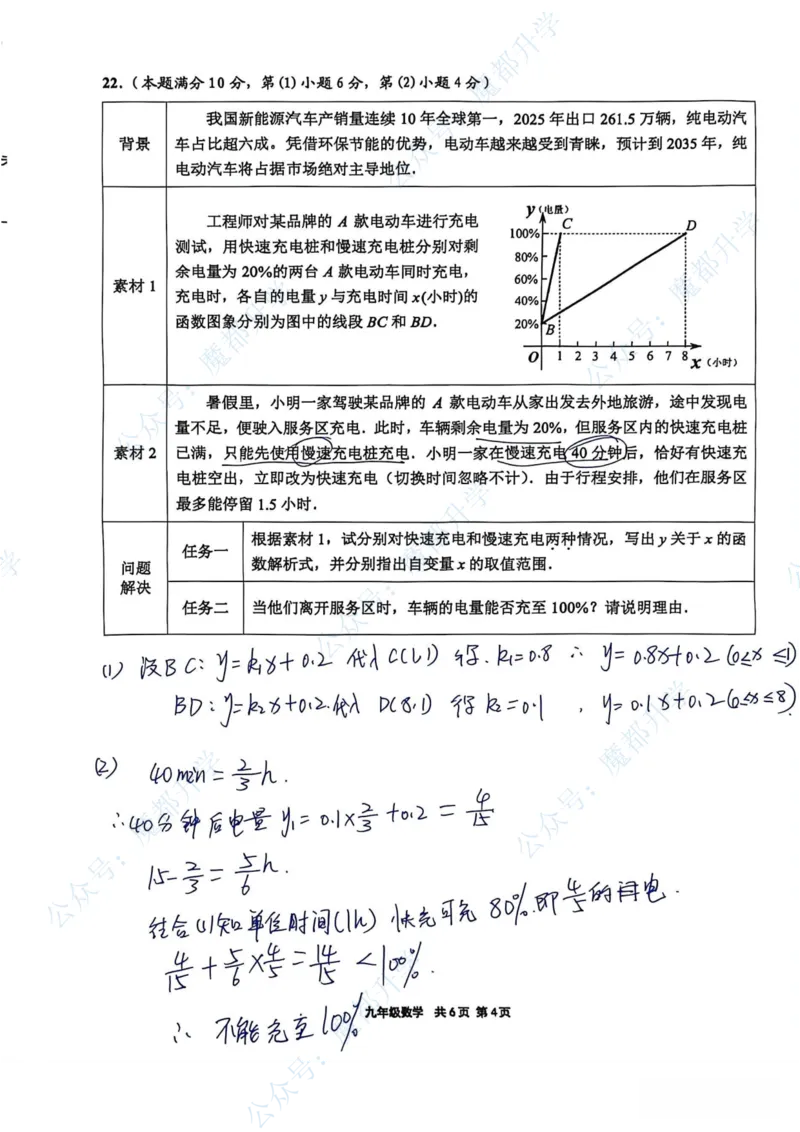 22.(本题满分10分,第(1)小题6分,第(2)小题4分)
背景
我国新能源汽车产销量连续10年全球第一,2025年出口261.5万辆,纯电动汽
车占比超六成.凭借环保节能的优势,电动车越来越受到青睐,预计到2035年,纯
电动汽车将占据市场绝对主导地位.
素材1
工程师对某品牌的 A 款电动车进行充电
测试,用快速充电桩和慢速充电桩分别对剩
余电量为20%的两台 A 款电动车同时充电,
充电时,各自的电量 y 与充电时间 x(小时)的
函数图象分别为图中的线段 BC 和 BD.
y(电量)
C
D
100%
80%
60%
40%
20%
B
O 1 2 3 4 5 6 7 8 x(小时)
素材2
暑假里,小明一家驾驶某品牌的 A 款电动车从家出发去外地旅游,途中发现电
量不足,便驶入服务区充电.此时,车辆剩余电量为20%,但服务区内的快速充电桩
已满,只能先使用慢速充电桩充电.小明一家在慢速充电40分钟后,恰好有快速充
电桩空出,立即改为快速充电(切换时间忽略不计).由于行程安排,他们在服务区
最多能停留1.5小时.
问题
解决
任务一
根据素材1,试分别对快速充电和慢速充电两种情况,写出 y 关于 x 的函
数解析式,并分别指出自变量 x 的取值范围.
任务二
当他们离开服务区时,车辆的电量能否充至100%?请说明理由.
(1) 设BC: y=k₁x+0.2 代入C(1,1) 得. k₁=0.8 ∴ y=0.8x+0.2 (0≤x≤1)
BD: y=k₂x+0.2.代入 D(8,1) 得 k₂=0.1 , y=0.1x+0.2 (0≤x≤8)
(2) 40min=2/3h.
∴40分钟后电量 y₁=0.1×2/3+0.2=4/15
1.5-2/3=5/6h.
结合(1)知单位时间(1h) 快充可充 80%.即4/5的电.
4/15+5/6×4/5=14/15<100%.
∴ 不能充至100%
九年级数学 共6页 第4页
公众号:魔都升学